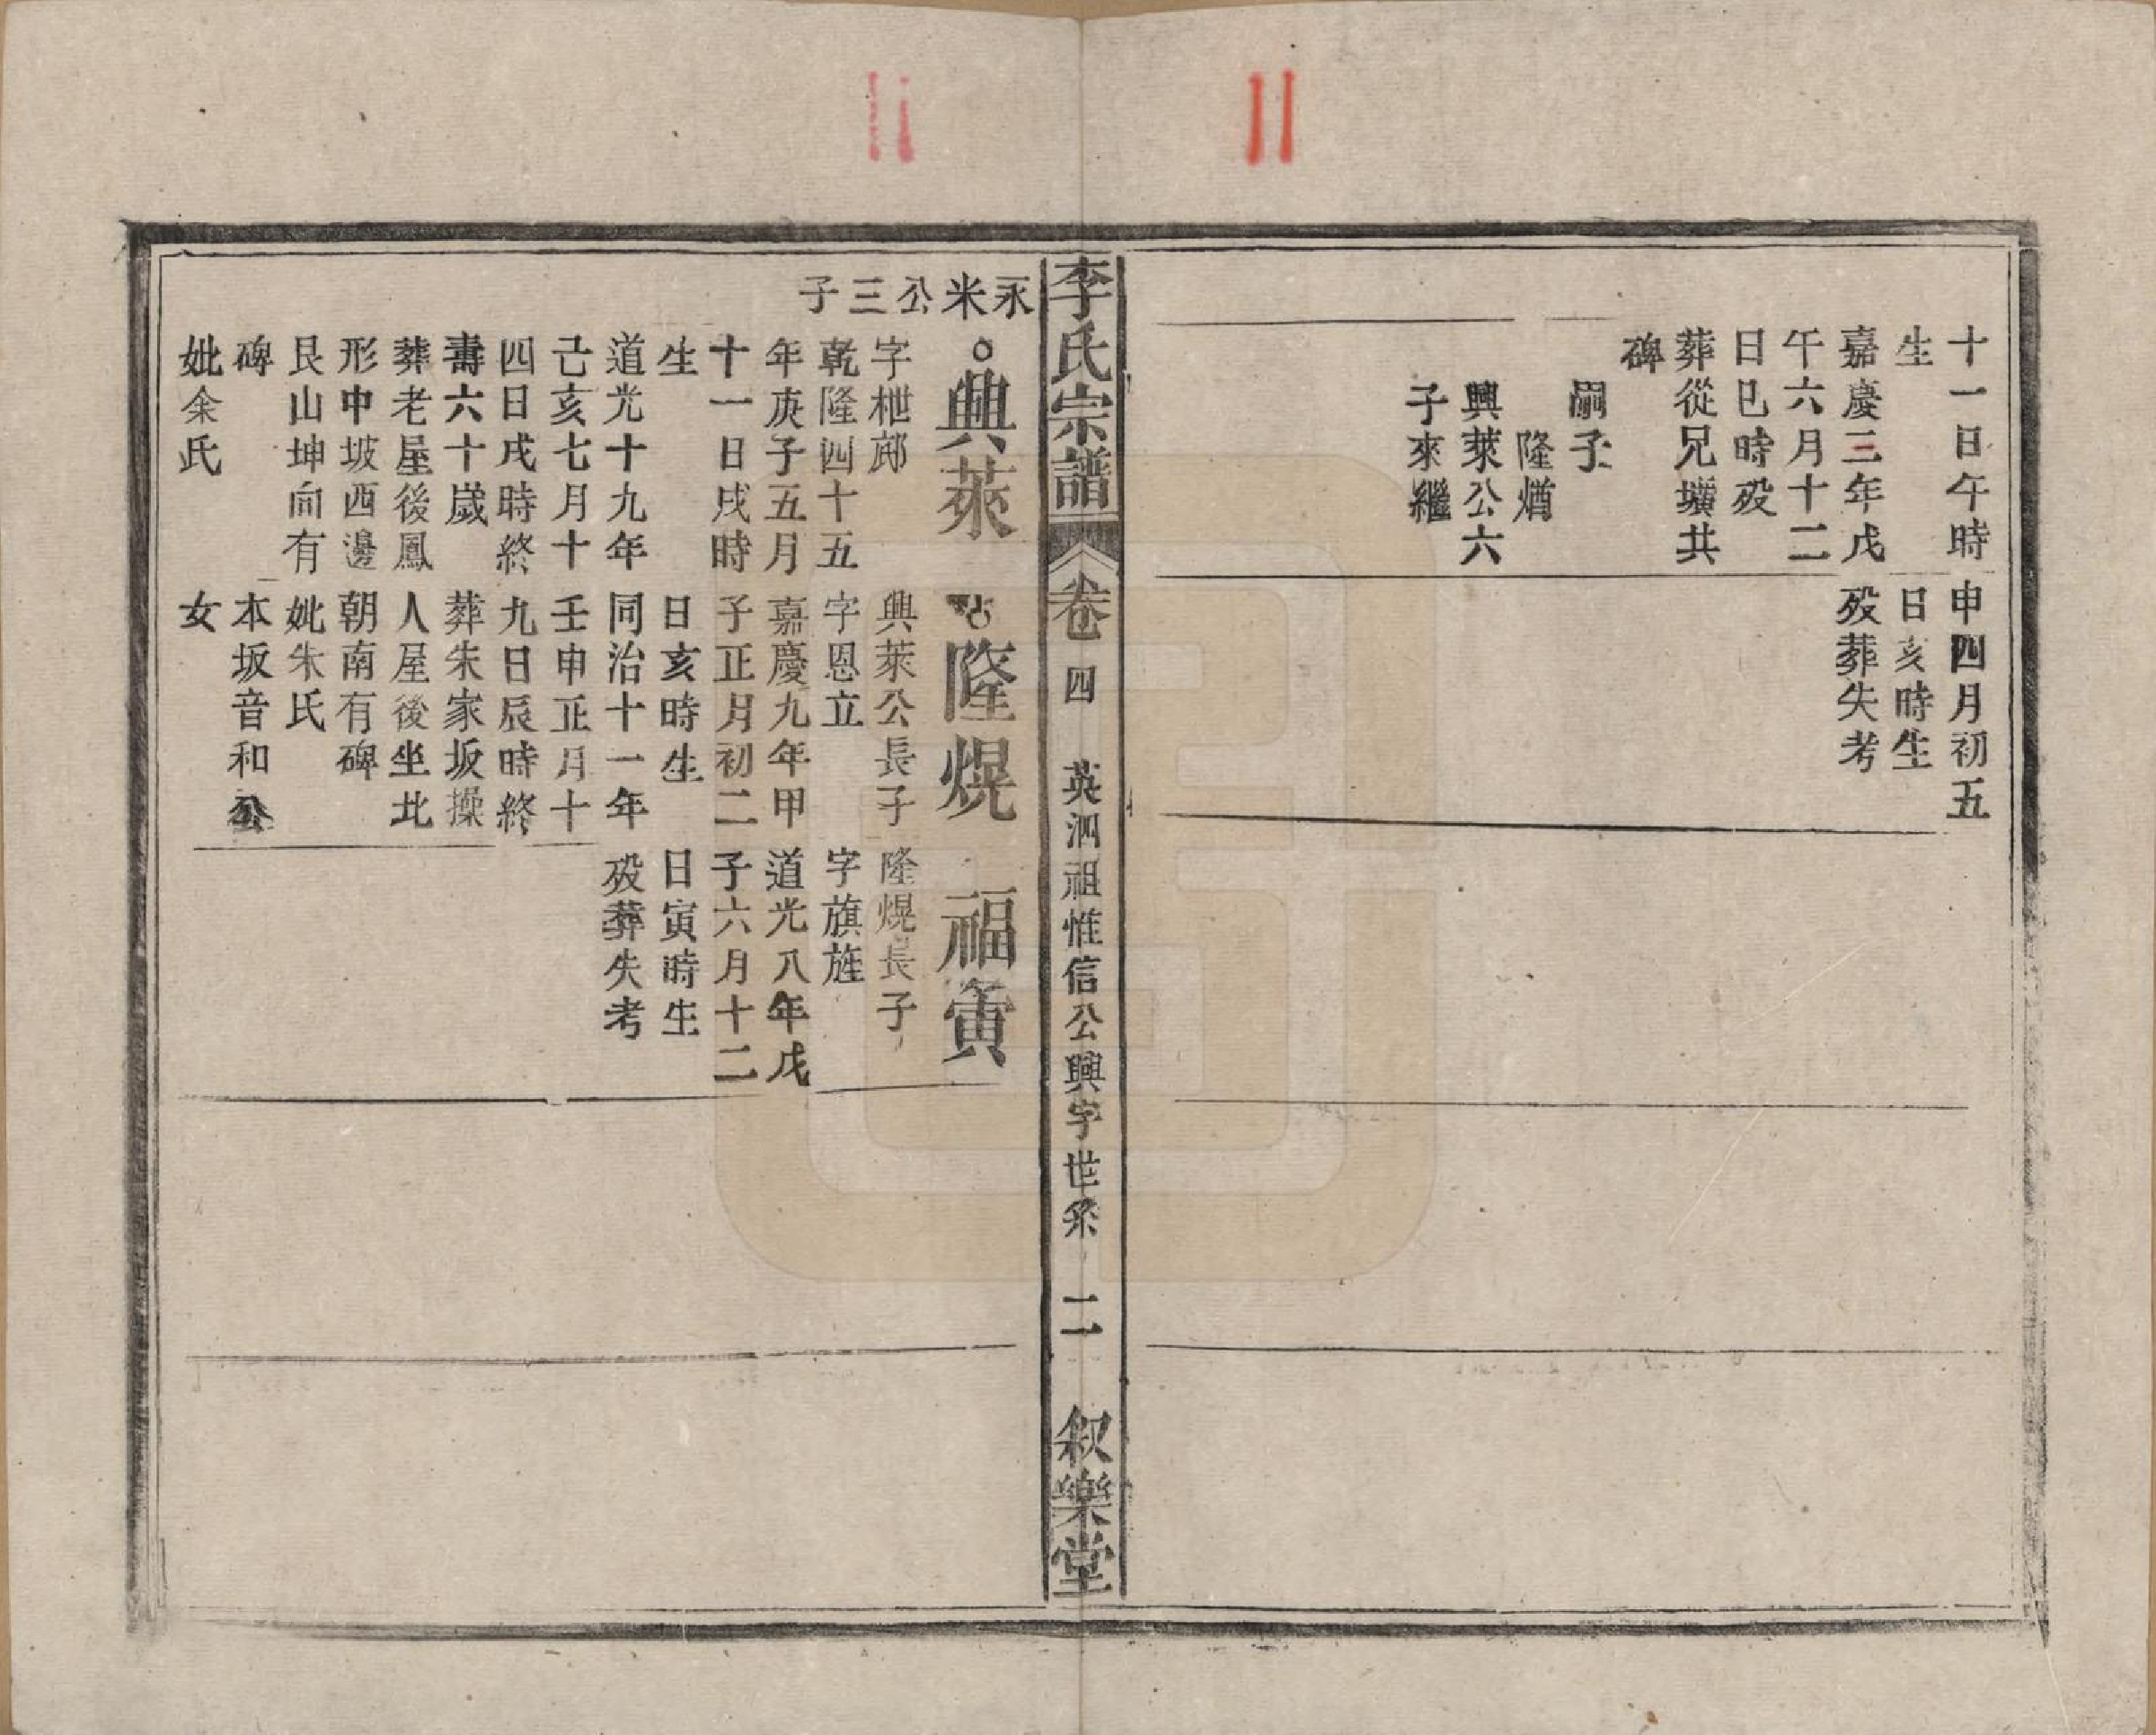 十一日午時
生
嘉慶三年戊
午六月十二
日巳時歿
葬從兄壙共
碑
嗣子
隆熸
興萊公六
子來繼
申四月初五
日亥時生
歿葬失考
李氏宗譜
卷四
英泗祖惟信公興字世系
二
敘樂堂
永米公三子
興萊
字枻邡
乾隆四十五
年庚子五月
十一日戌時
生
道光十九年
己亥七月十
四日戌時終
壽六十歲
葬老屋後鳳
形中坡西邊
艮山坤向有
碑
妣余氏
隆熀
興萊公長子
字恩立
嘉慶九年甲
子正月初二
日亥時生
同治十一年
壬申正月十
九日辰時終
葬朱家坂操
人屋後坐北
朝南有碑
妣朱氏
本坂音和公
女
福寅
隆熀長子
字旗旌
道光八年戊
子六月十二
日寅時生
歿葬失考